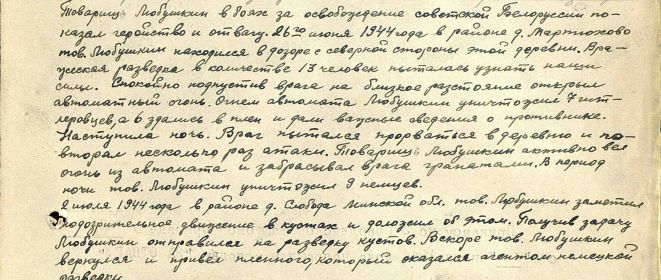 Товарищ Любушкин в боях за освобождение советской Белоруссии по-
казал геройство и отвагу. 26го июня 1944 года в районе д. Мартюхово
тов. Любушкин находился в дозоре с северной стороны этой деревни. Вра-
жеская разведка в количестве 13 человек пыталась узнать наши
силы. Спокойно подпустив врага на близкое разстояние открыл
автоматный огонь. Огнем автомата Любушкин уничтожил 7 гит-
леровцев, а 6 сдались в плен и дали важные сведения о противнике.
Наступила ночь. Враг пытался прорваться в деревню и по-
вторял несколько раз атаки. Товарищ Любушкин активно вел
огонь из автомата и забрасывал врага гранатами. В период
ночи тов. Любушкин уничтожил 9 немцев.
2 июля 1944 года в районе д. Слобода Минской обл. тов. Любушкин заметил
подозрительное движение в кустах и доложил об этом. Получив задачу
Любушкин отправился на разведку кустов. Вскоре тов. Любушкин
вернулся и привел пленного, который оказался агентом немецкой
разведки